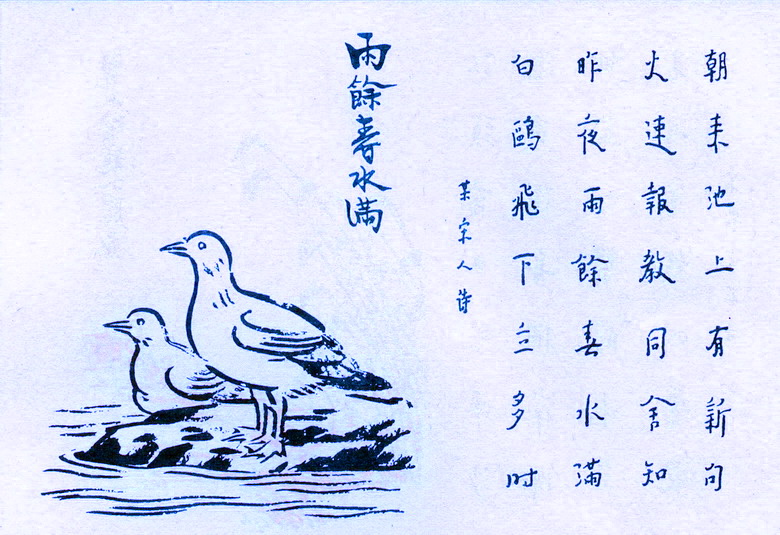 朝来池上有新句
火速報教同舍知
昨夜雨餘春水滿
白鷗飛下立多时
某宋人詩
雨餘春水滿